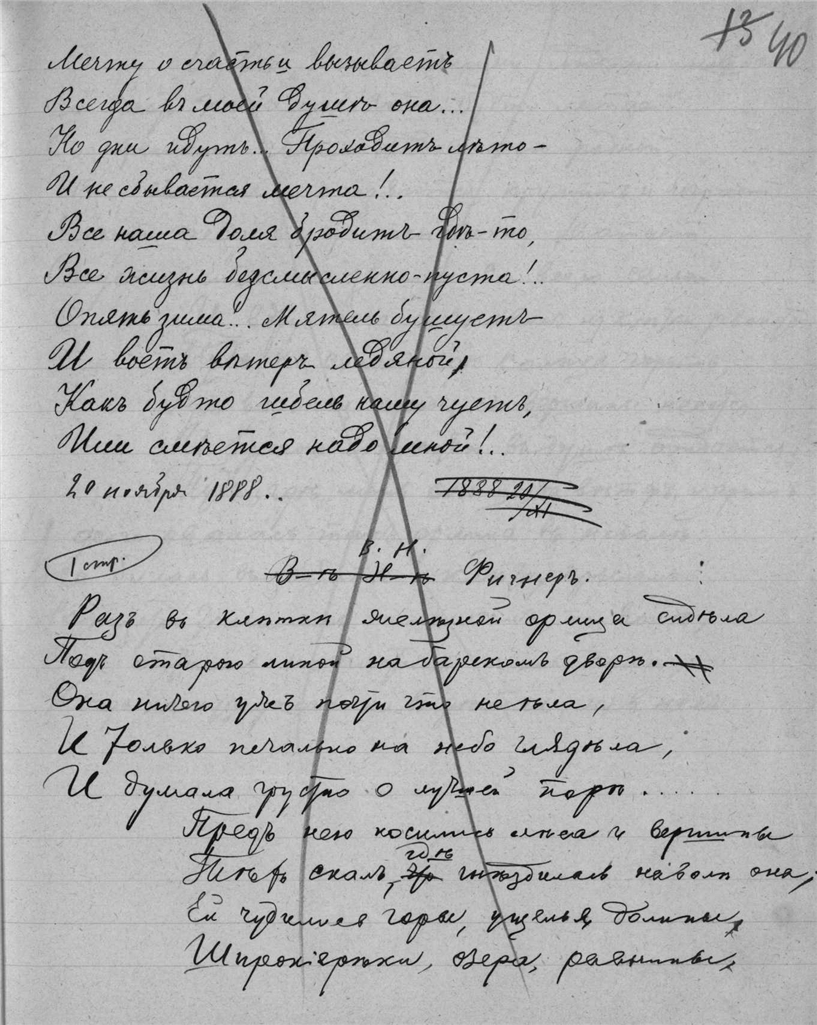 13 40
Мечту о счастьи вызываетъ
Всегда въ моей душѣ она...
Но дни идутъ... Проходитъ лѣто -
И не сбывается мечта!..
Все наша доля бродитъ гдѣ-то,
Все жизнь бедсмысленно-пуста!..
Опять зима... Мятель бушуетъ
И воетъ вѣтеръ ледяной,
Какъ будто гибель нашу чуетъ,
Или смѣется надо мной!..
20 ноября 1888.. 1888 20/XI
1 стр. В. Н.
В-ѣ Н-ѣ Фигнеръ.
Разъ въ клѣтки желѣзной орлица сидѣла
Подъ старою липой на барскомъ дворѣ.
Она ничего ужъ почти что не ѣла,
И только печально на небо глядѣла,
И думала грустно о лучшей порѣ......
Предъ нею носились лѣса и вершины
гдѣ
Тѣхъ скалъ, гнѣздилась на волѣ она,
Ей чудились горы, ущелья, долины,
Широкія рѣки, озера, равнины,